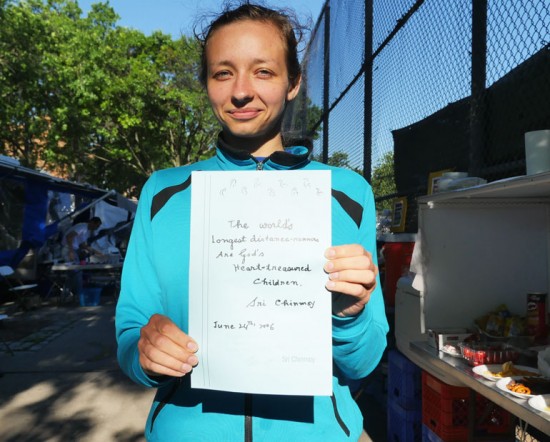 The world's
Longest distance-runners
Are God's
Heart-treasured
Children.
Sri Chinmoy
June 24th, 2006
Sri Chinmoy